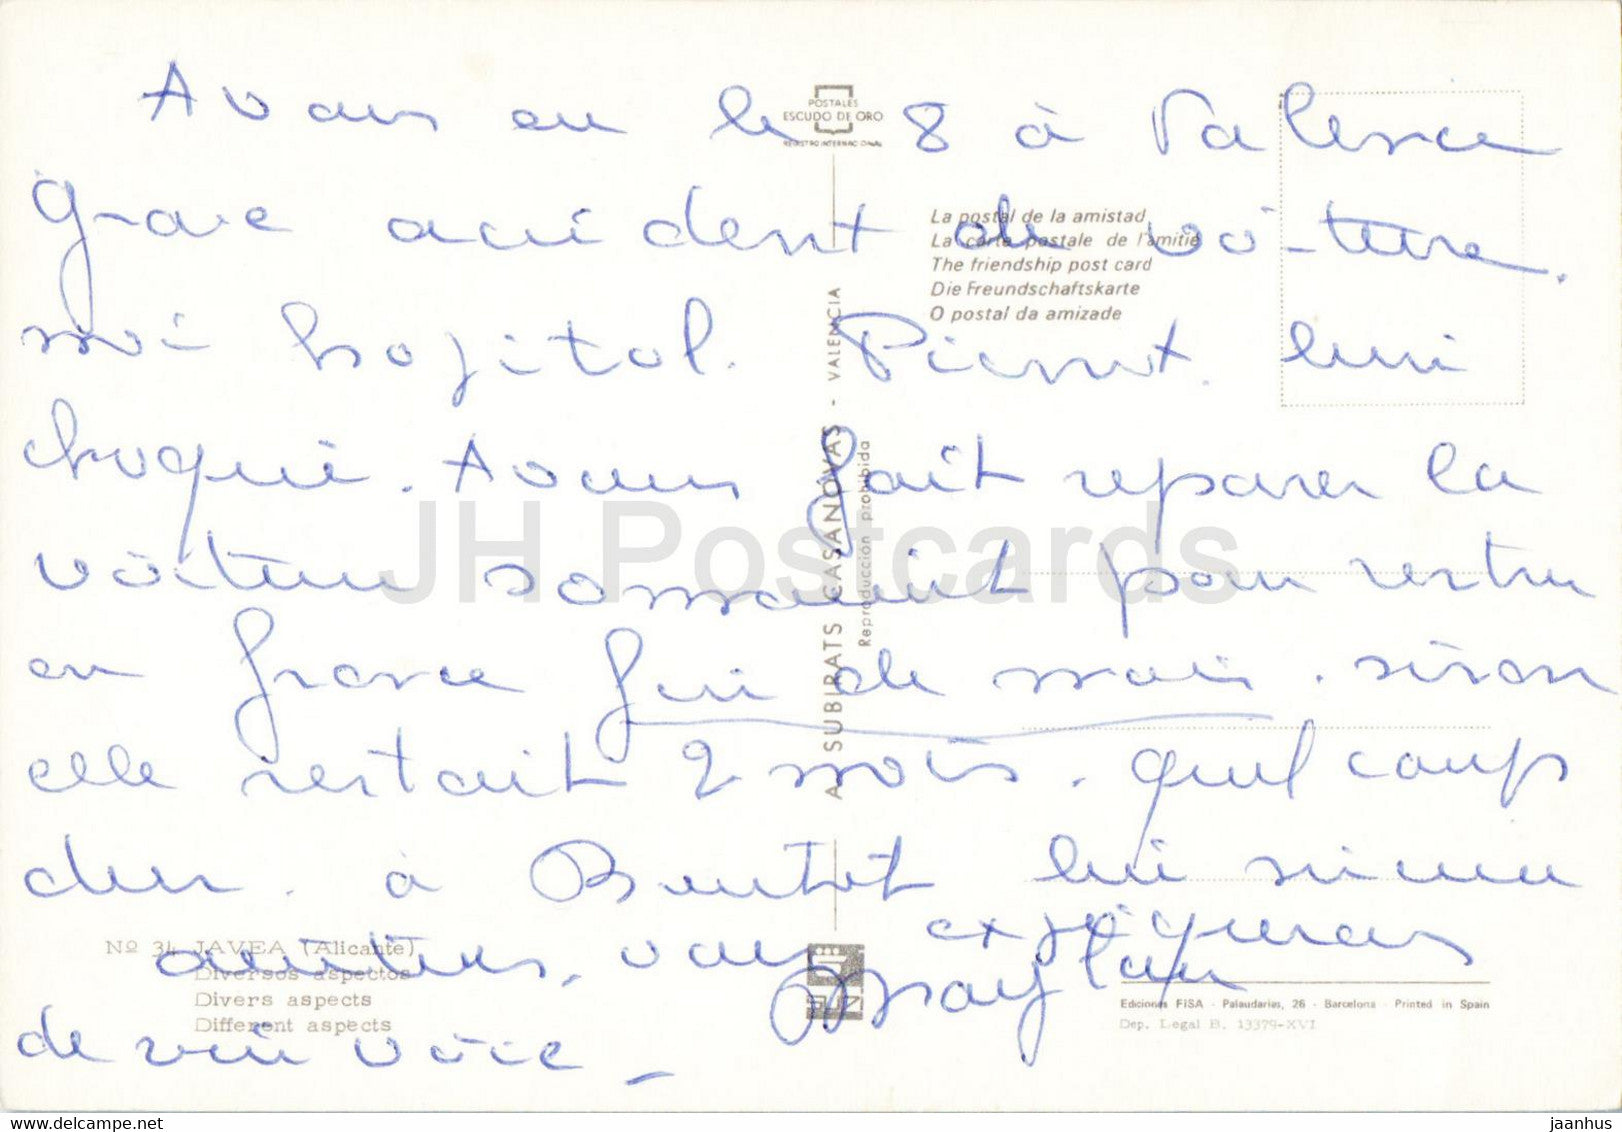 Avons eu le 8 à Valence
grave accident de voiture.
moi hopital. Pierrot. lui
choqué. Avons fait reparer la
voiture sommairement pour rentrer
en France fin de mois. sinon
elle restait 2 mois. quel coup
dur. à Bientot
amitiés, vous expliquerai
de vive voix _
POSTALES
ESCUDO DE ORO
REGISTRO INTERNACIONAL
La postal de la amistad
La carte postale de l'amitié
The friendship post card
Die Freundschaftskarte
O postal da amizade
A. SUBIRATS CASANOVAS - VALENCIA
Reproducción prohibida
JH Postcards
Nº 34 JAVEA (Alicante)
Diversos aspectos
Divers aspects
Different aspects
Ediciones FISA - Palaudarias, 26 - Barcelona - Printed in Spain
Dep. Legal B. 13379-XVI
jaanhus